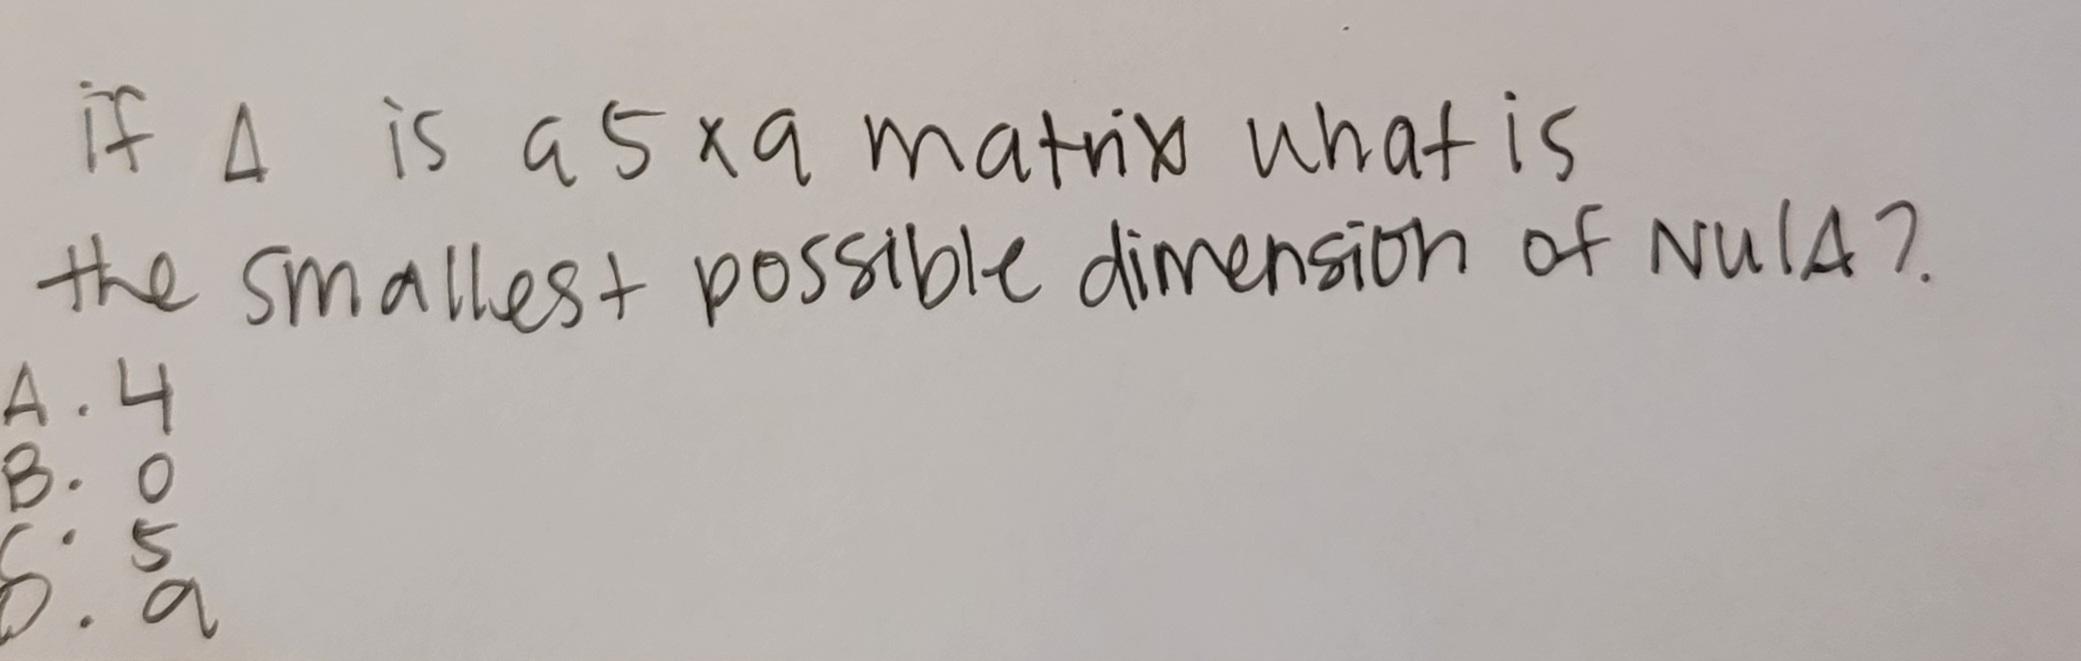 if A is a 5 x 9 matrix what is
the smallest possible dimension of NulA?
A. 4
B. 0
C. 5
D. 9